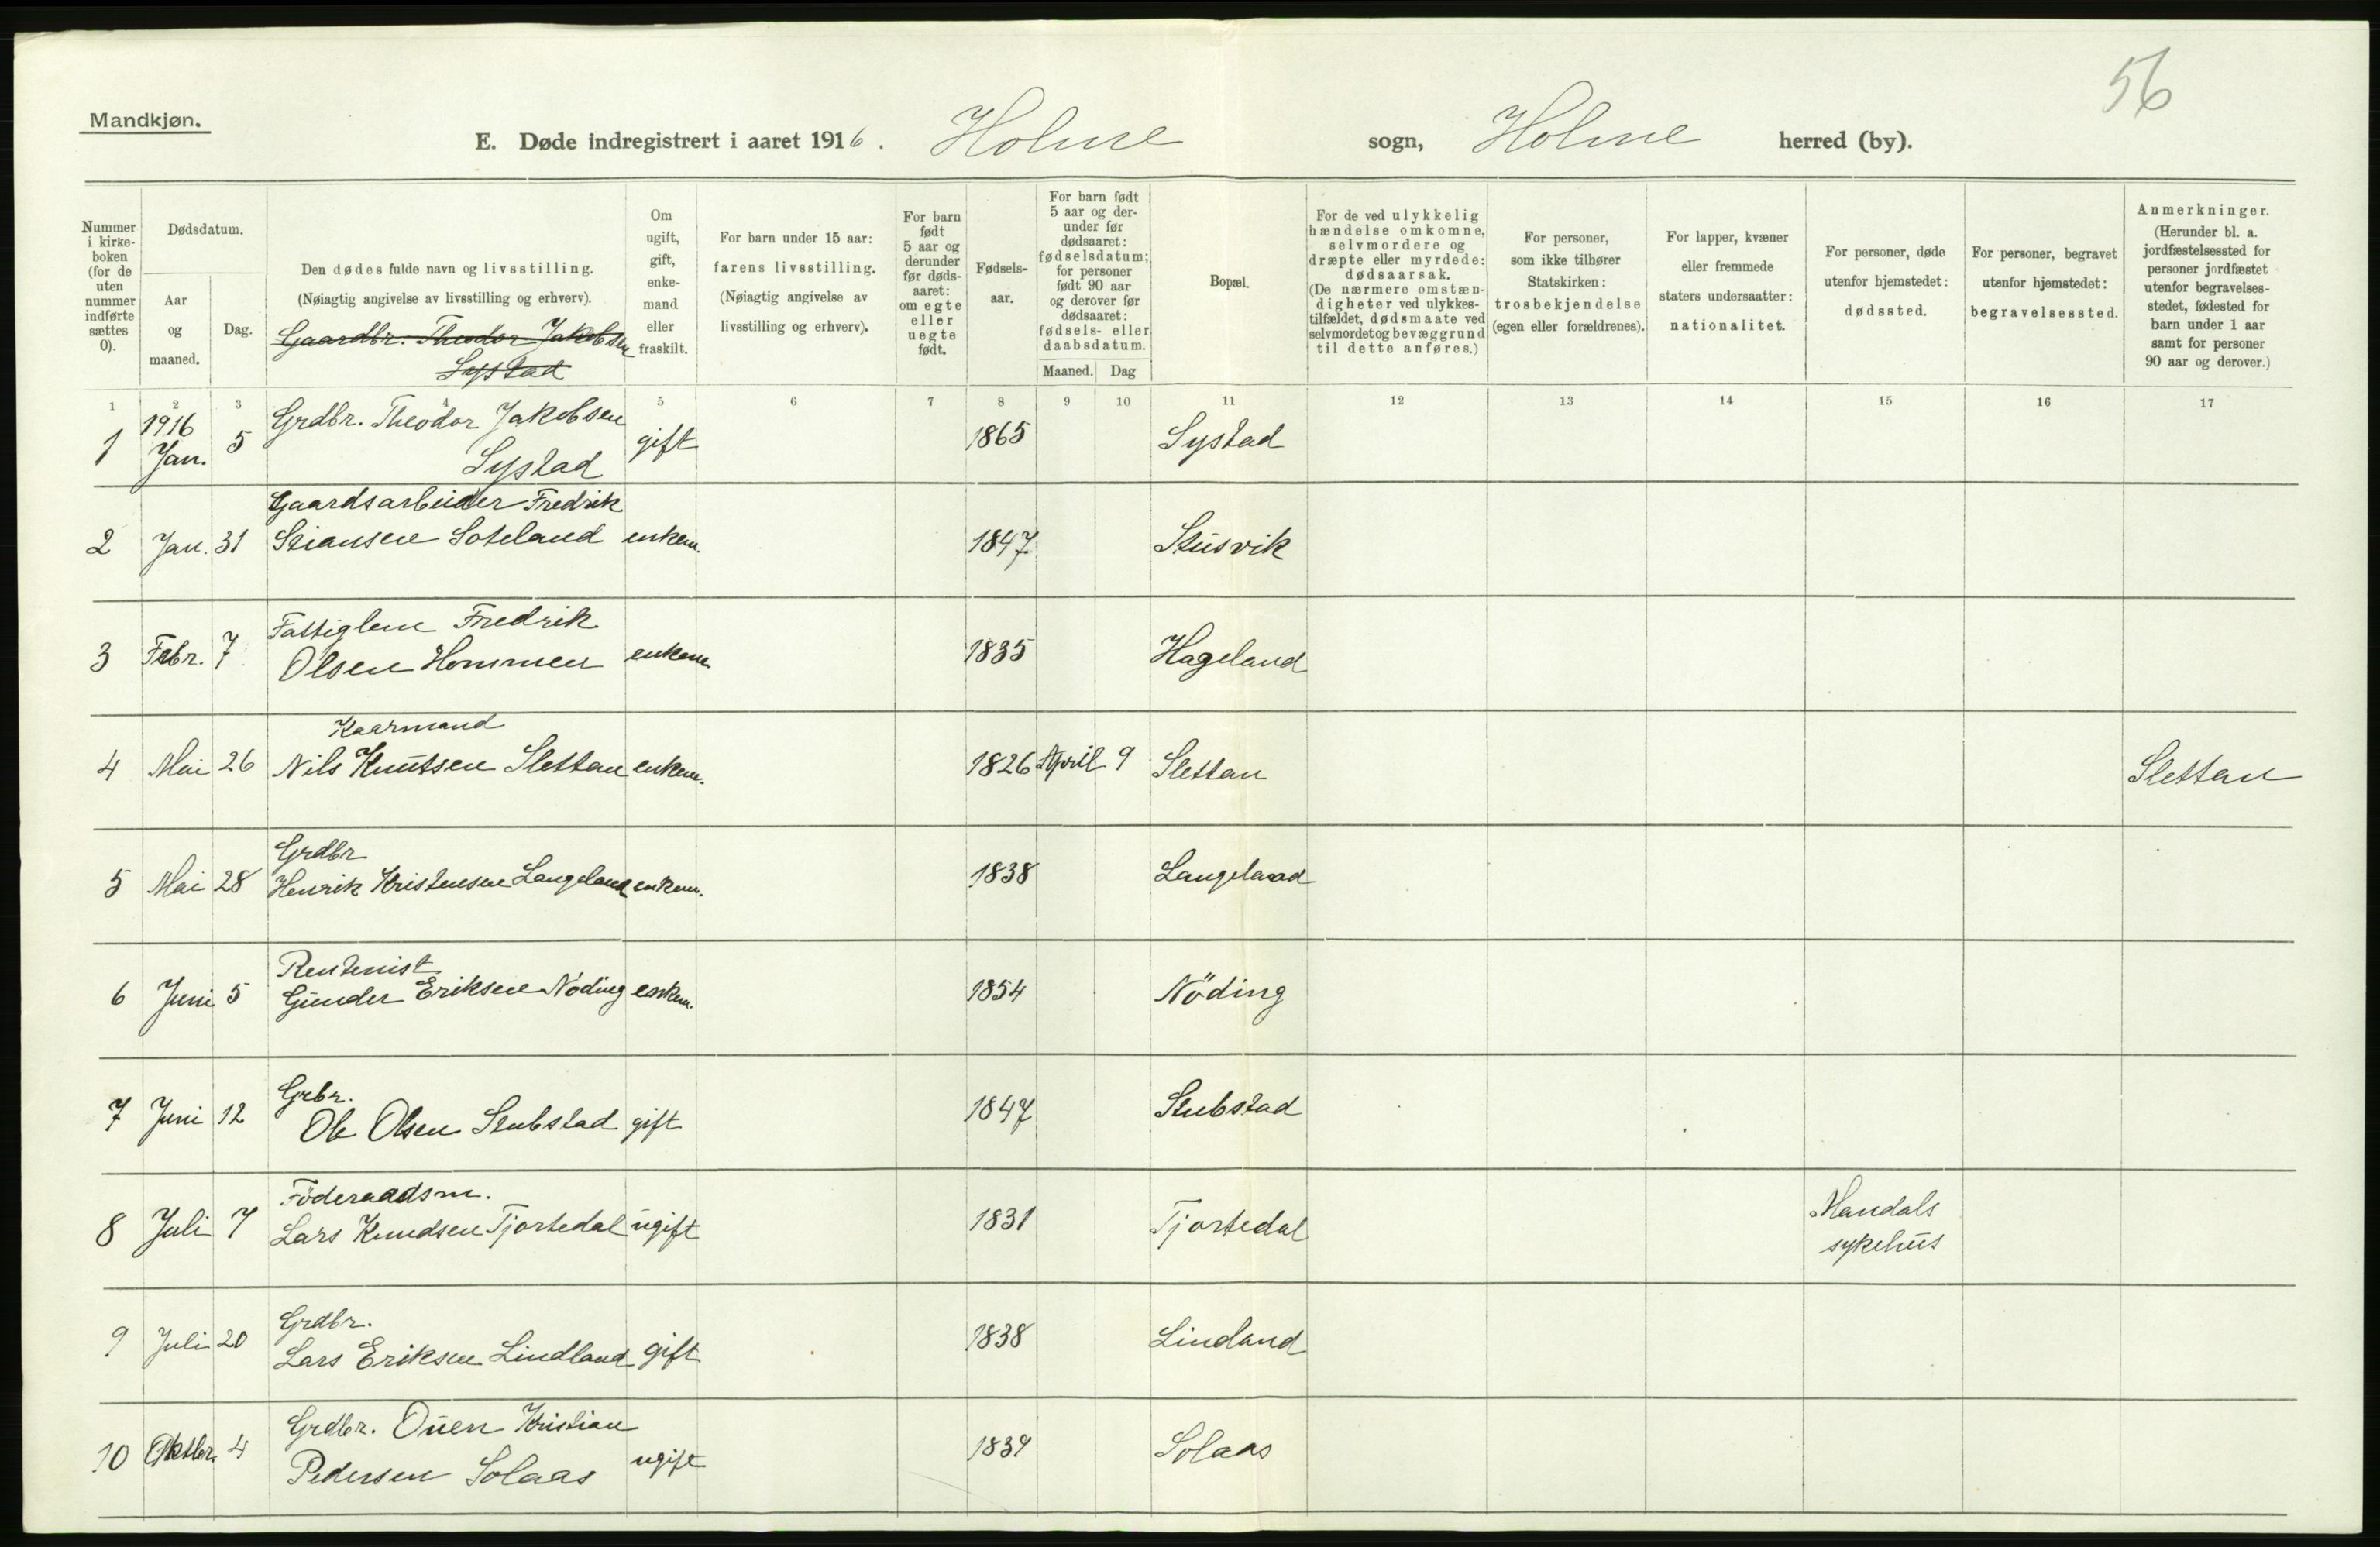 56
Mandkjøn.
E. Døde indregistrert i aaret 1916. Holme sogn, Holme herred (by).
Nummer i kirke-boken (for de uten nummer indførte sættes 0).
Dødsdatum.
Aar og maaned.
Dag.
Den dødes fulde navn og livsstilling.
(Nøiagtig angivelse av livsstilling og erhverv).
Gaardbr. Theodor Jakobsen
Systad
Om ugift, gift, enke-mand eller fraskilt.
For barn under 15 aar: farens livsstilling. (Nøiagtig angivelse av livsstilling og erhverv).
For barn født 5 aar og derunder før døds-aaret: om egte eller uegte født.
Fødsels-aar.
For barn født 5 aar og der-under før dødsaaret: fødselsdatum; for personer født 90 aar og derover før dødsaaret: fødsels- eller daabsdatum.
Maaned. Dag
Bopæl.
For de ved ulykkelig hændelse omkomne, selvmordere og dræpte eller myrdede: dødsaarsak. (De nærmere omstæn-digheter ved ulykkes-tilfældet, dødsmaate ved selvmordet og bevæggrund til dette anføres.)
For personer, som ikke tilhører Statskirken: trosbekjendelse (egen eller forældrenes).
For lapper, kvæner eller fremmede staters undersaatter: nationalitet.
For personer, døde utenfor hjemstedet: dødssted.
For personer, begravet utenfor hjemstedet: begravelsessted.
Anmerkninger. (Herunder bl. a. jordfæstelsessted for personer jordfæstet utenfor begravelses-stedet, fødested for barn under 1 aar samt for personer 90 aar og derover.)
1 2 3 4 5 6 7 8 9 10 11 12 13 14 15 16 17
1 1916 Jan. 5 Grdbr. Theodor Jakobsen
Systad gift 1865 Systad
2 Jan. 31 Gaardsarbeider Fredrik
Stiansen Soteland enkem. 1847 Stusvik
3 Febr. 7 Fattiglem Fredrik
Olsen Hommen enkem. 1835 Hageland
Kaarmand
4 Mai 26 Nils Knutsen Slettan enkem. 1826 April 9 Slettan Slettan
Grdbr
5 Mai 28 Henrik Kristensen Langeland enkem. 1838 Langeland
Rentenist
6 Juni 5 Gunder Eriksen Nöding enkem. 1854 Nöding
Grbr.
7 Juni 12 Ole Olsen Stubstad gift 1847 Stubstad
Föderaadsm.
8 Juli 7 Lars Knudsen Tjortedal ugift 1831 Tjortedal Mandals
sykehus
Grdbr.
9 Juli 20 Lars Eriksen Lindland gift 1838 Lindland
Grdbr. Ouen Kristian
10 Oktbr. 4 Pedersen Solaas ugift 1839 Solaas